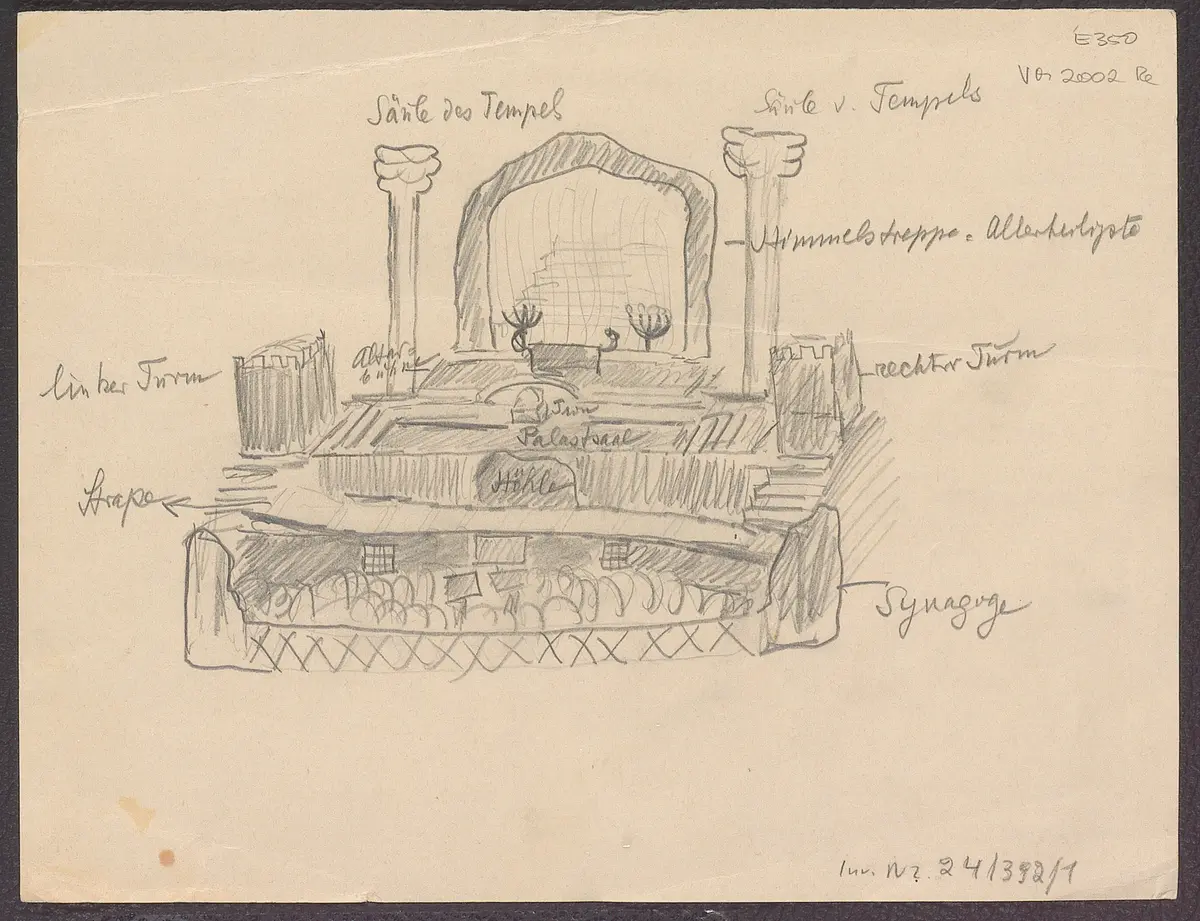 E 350
Vθ 2002 Re
Säule des Tempels
Säule v. Tempels
Himmelstreppe = Allerheiligste
linker Turm
Altar
bühne
rechter Turm
Tron
Palastsaal
Höhle
Straße
Synagoge
Inv. Nr. 24/392/1